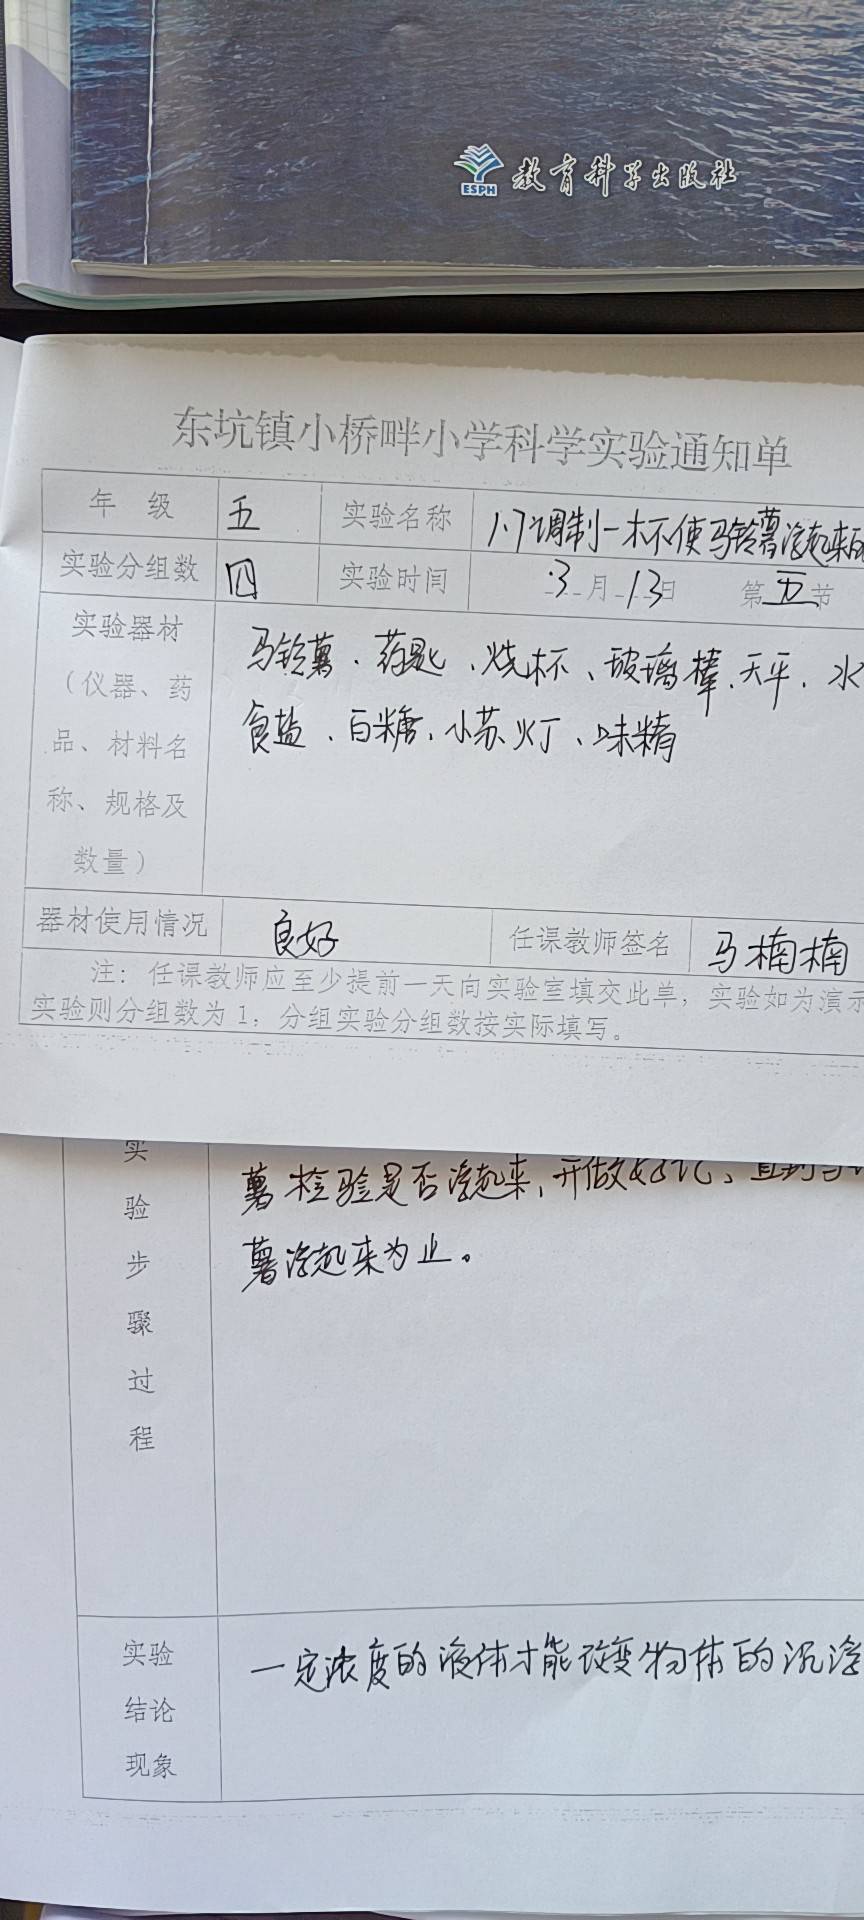 ESPH 教育科学出版社
东坑镇小桥畔小学科学实验通知单
年 级 五 实验名称 1.7调制一杯使马铃薯浮起来的
实验分组数 四 实验时间 3月13日 第五节
实验器材
(仪器、药
品、材料名
称、规格及
数量)
马铃薯、药匙、烧杯、玻璃棒、天平、水
食盐、白糖、小苏灯、味精
器材使用情况 良好 任课教师签名 马楠楠
注：任课教师应至少提前一天向实验室填交此单，实验如为演示
实验则分组数为1；分组实验分组数按实际填写。
实
验
步
骤
过
程
薯检验是否浮起来，并做好记、直到马
薯浮起来为止。
实验
结论
现象
一定浓度的液体才能改变物体的沉浮